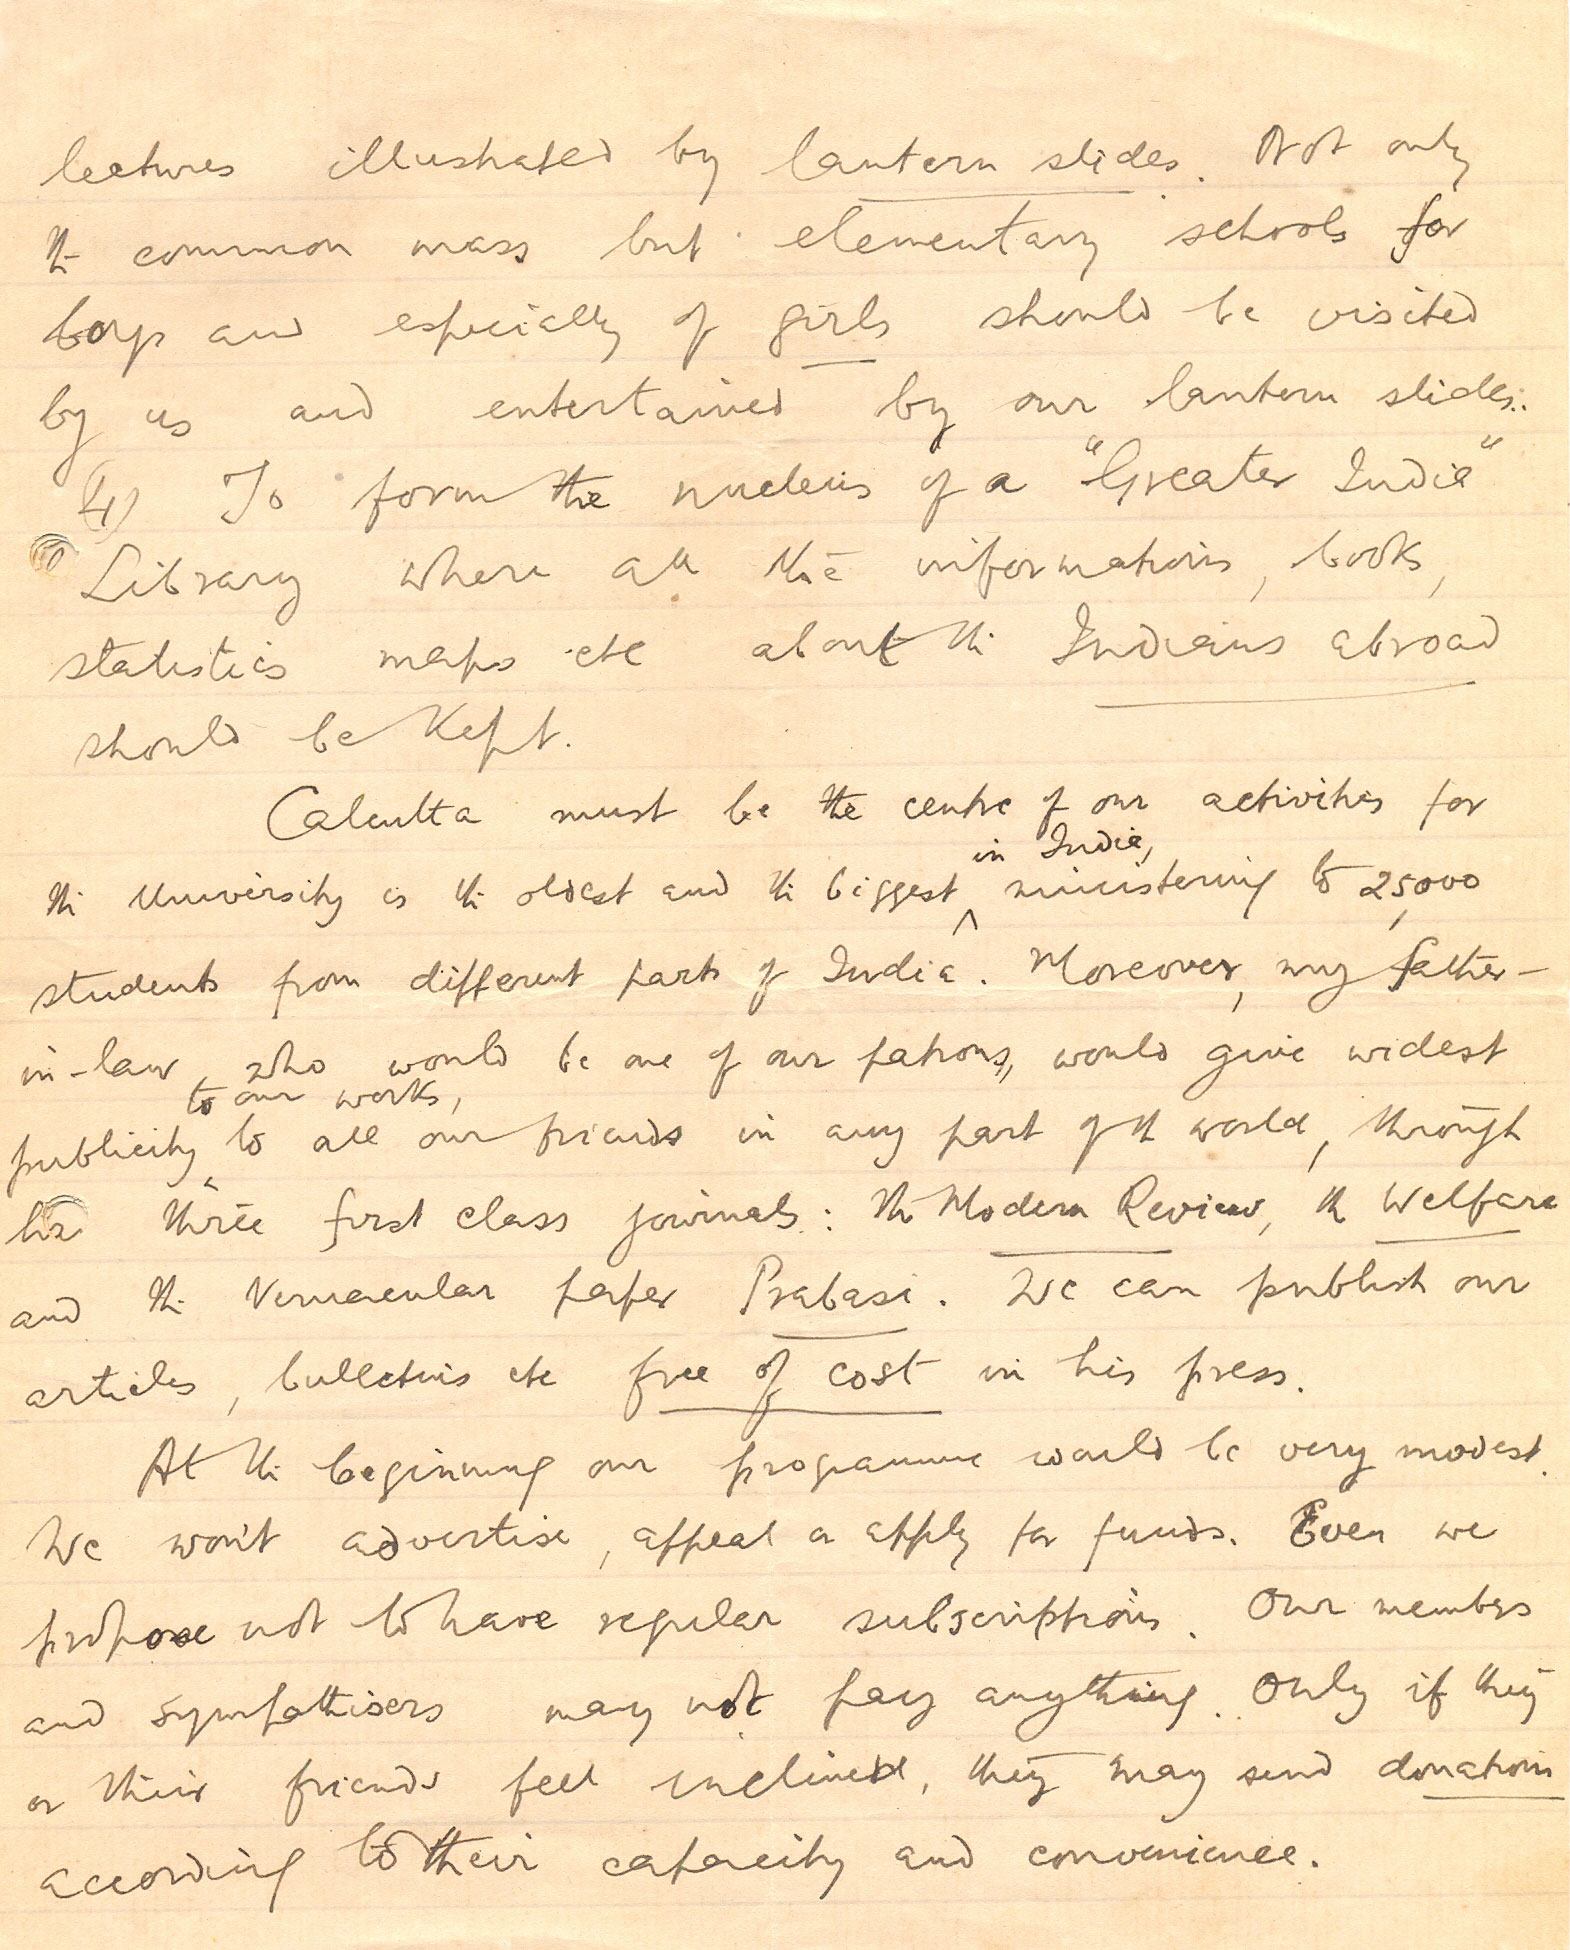 lectures illustrated by lantern slides. Not only
the common mass but elementary schools for
boys and especially of girls should be visited
by us and entertained by our lantern slides.
(4) To form the nucleus of a "Greater India"
Library where all the informations, books,
statistics maps etc about the Indians abroad
should be kept.
Calcutta must be the centre of our activities for
in India,
the University is the oldest and the biggest ^ ministering to 25,000
students from different parts of India. Moreover, my father-
in-law, who would be one of our patrons, would give widest
to our works,
publicity ^ to all our friends in any part of the world, through
his three first class journals: the Modern Review, the Welfare
and the Vernacular paper Prabasi. We can publish our
articles, bulletins etc free of cost in his press.
At the beginning our programme would be very modest.
We won't advertise, appeal or apply for funds. Even we
propose not to have regular subscriptions. Our members
and sympathisers may not pay anything. Only if they
or their friends feel inclined, they may send donations
according to their capacity and convenience.